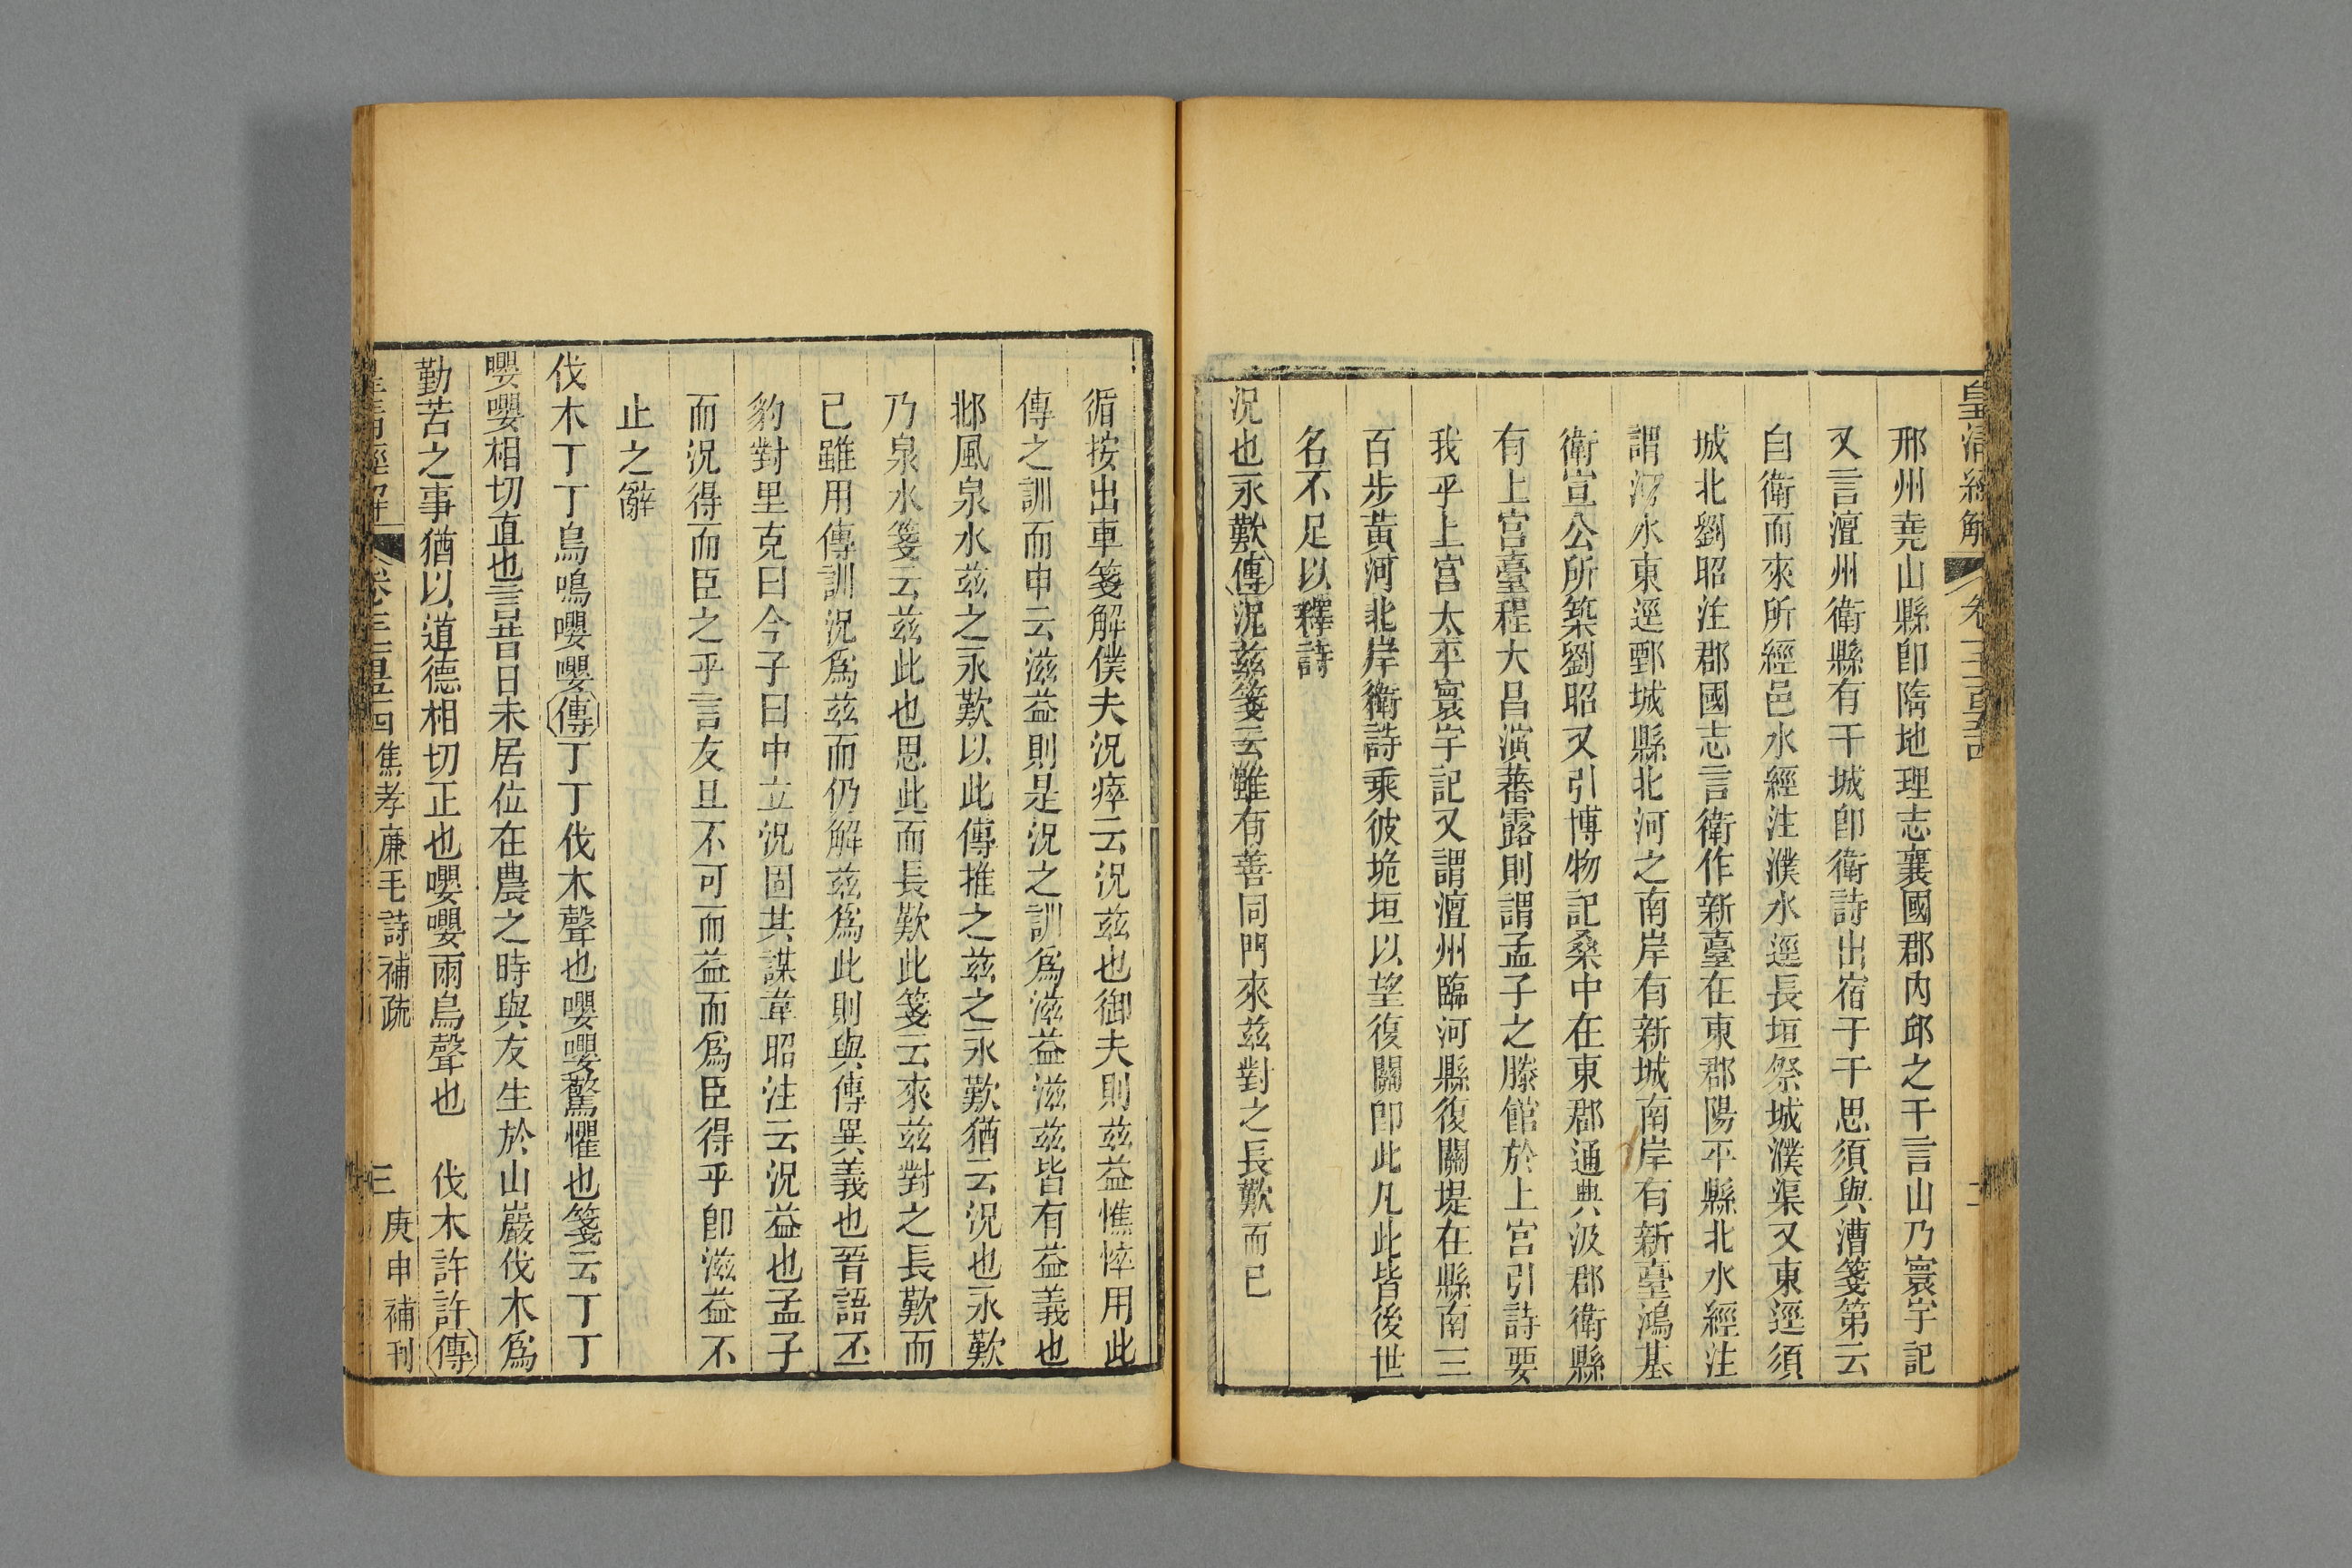 皇清經解
邢州堯山縣卽隋地理志襄國郡內邱之干言山乃寰宇記
又言澶州衛縣有干城卽衛詩出宿于干思須與漕箋第云
自衛而來所經邑水經注濮水逕長垣祭城濮渠又東逕須
城北劉昭注郡國志言衛作新臺在東郡陽平縣北水經注
謂河水東逕鄄城縣北河之南岸有新城南岸有新臺鴻基
衛宣公所築劉昭又引博物記桑中在東郡通典汲郡衛縣
有上宮臺程大昌演蕃露則謂孟子之滕館於上宮引詩要
我乎上宮太平寰宇記又謂澶州臨河縣復關堤在縣南三
百步黃河北岸衛詩乘彼垝垣以望復關卽此凡此皆後世
名不足以釋詩
況也永歎傳況茲箋云雖有善同門來茲對之長歎而已
循按出車箋解僕夫況瘁云況茲也御夫則茲益憔悴用此
傳之訓而申云滋益則是況之訓爲滋益滋茲皆有益義也
邶風泉水茲之永歎以此傳推之茲之永歎猶云況也永歎
乃泉水箋云茲此也思此而長歎此箋云來茲對之長歎而
已雖用傳訓況爲茲而仍解茲爲此則與傳異義也晉語丕
豹對里克曰今子曰中立況固其謀韋昭注云況益也孟子
而況得而臣之乎言友且不可而益而爲臣得乎卽滋益不
止之辭
伐木丁丁鳥鳴嚶嚶傳丁丁伐木聲也嚶嚶驚懼也箋云丁丁
嚶嚶相切直也言昔日未居位在農之時與友生於山巖伐木爲
勤苦之事猶以道德相切正也嚶嚶兩鳥聲也 伐木許許傳
焦孝廉毛詩補疏 三 庚申補刊